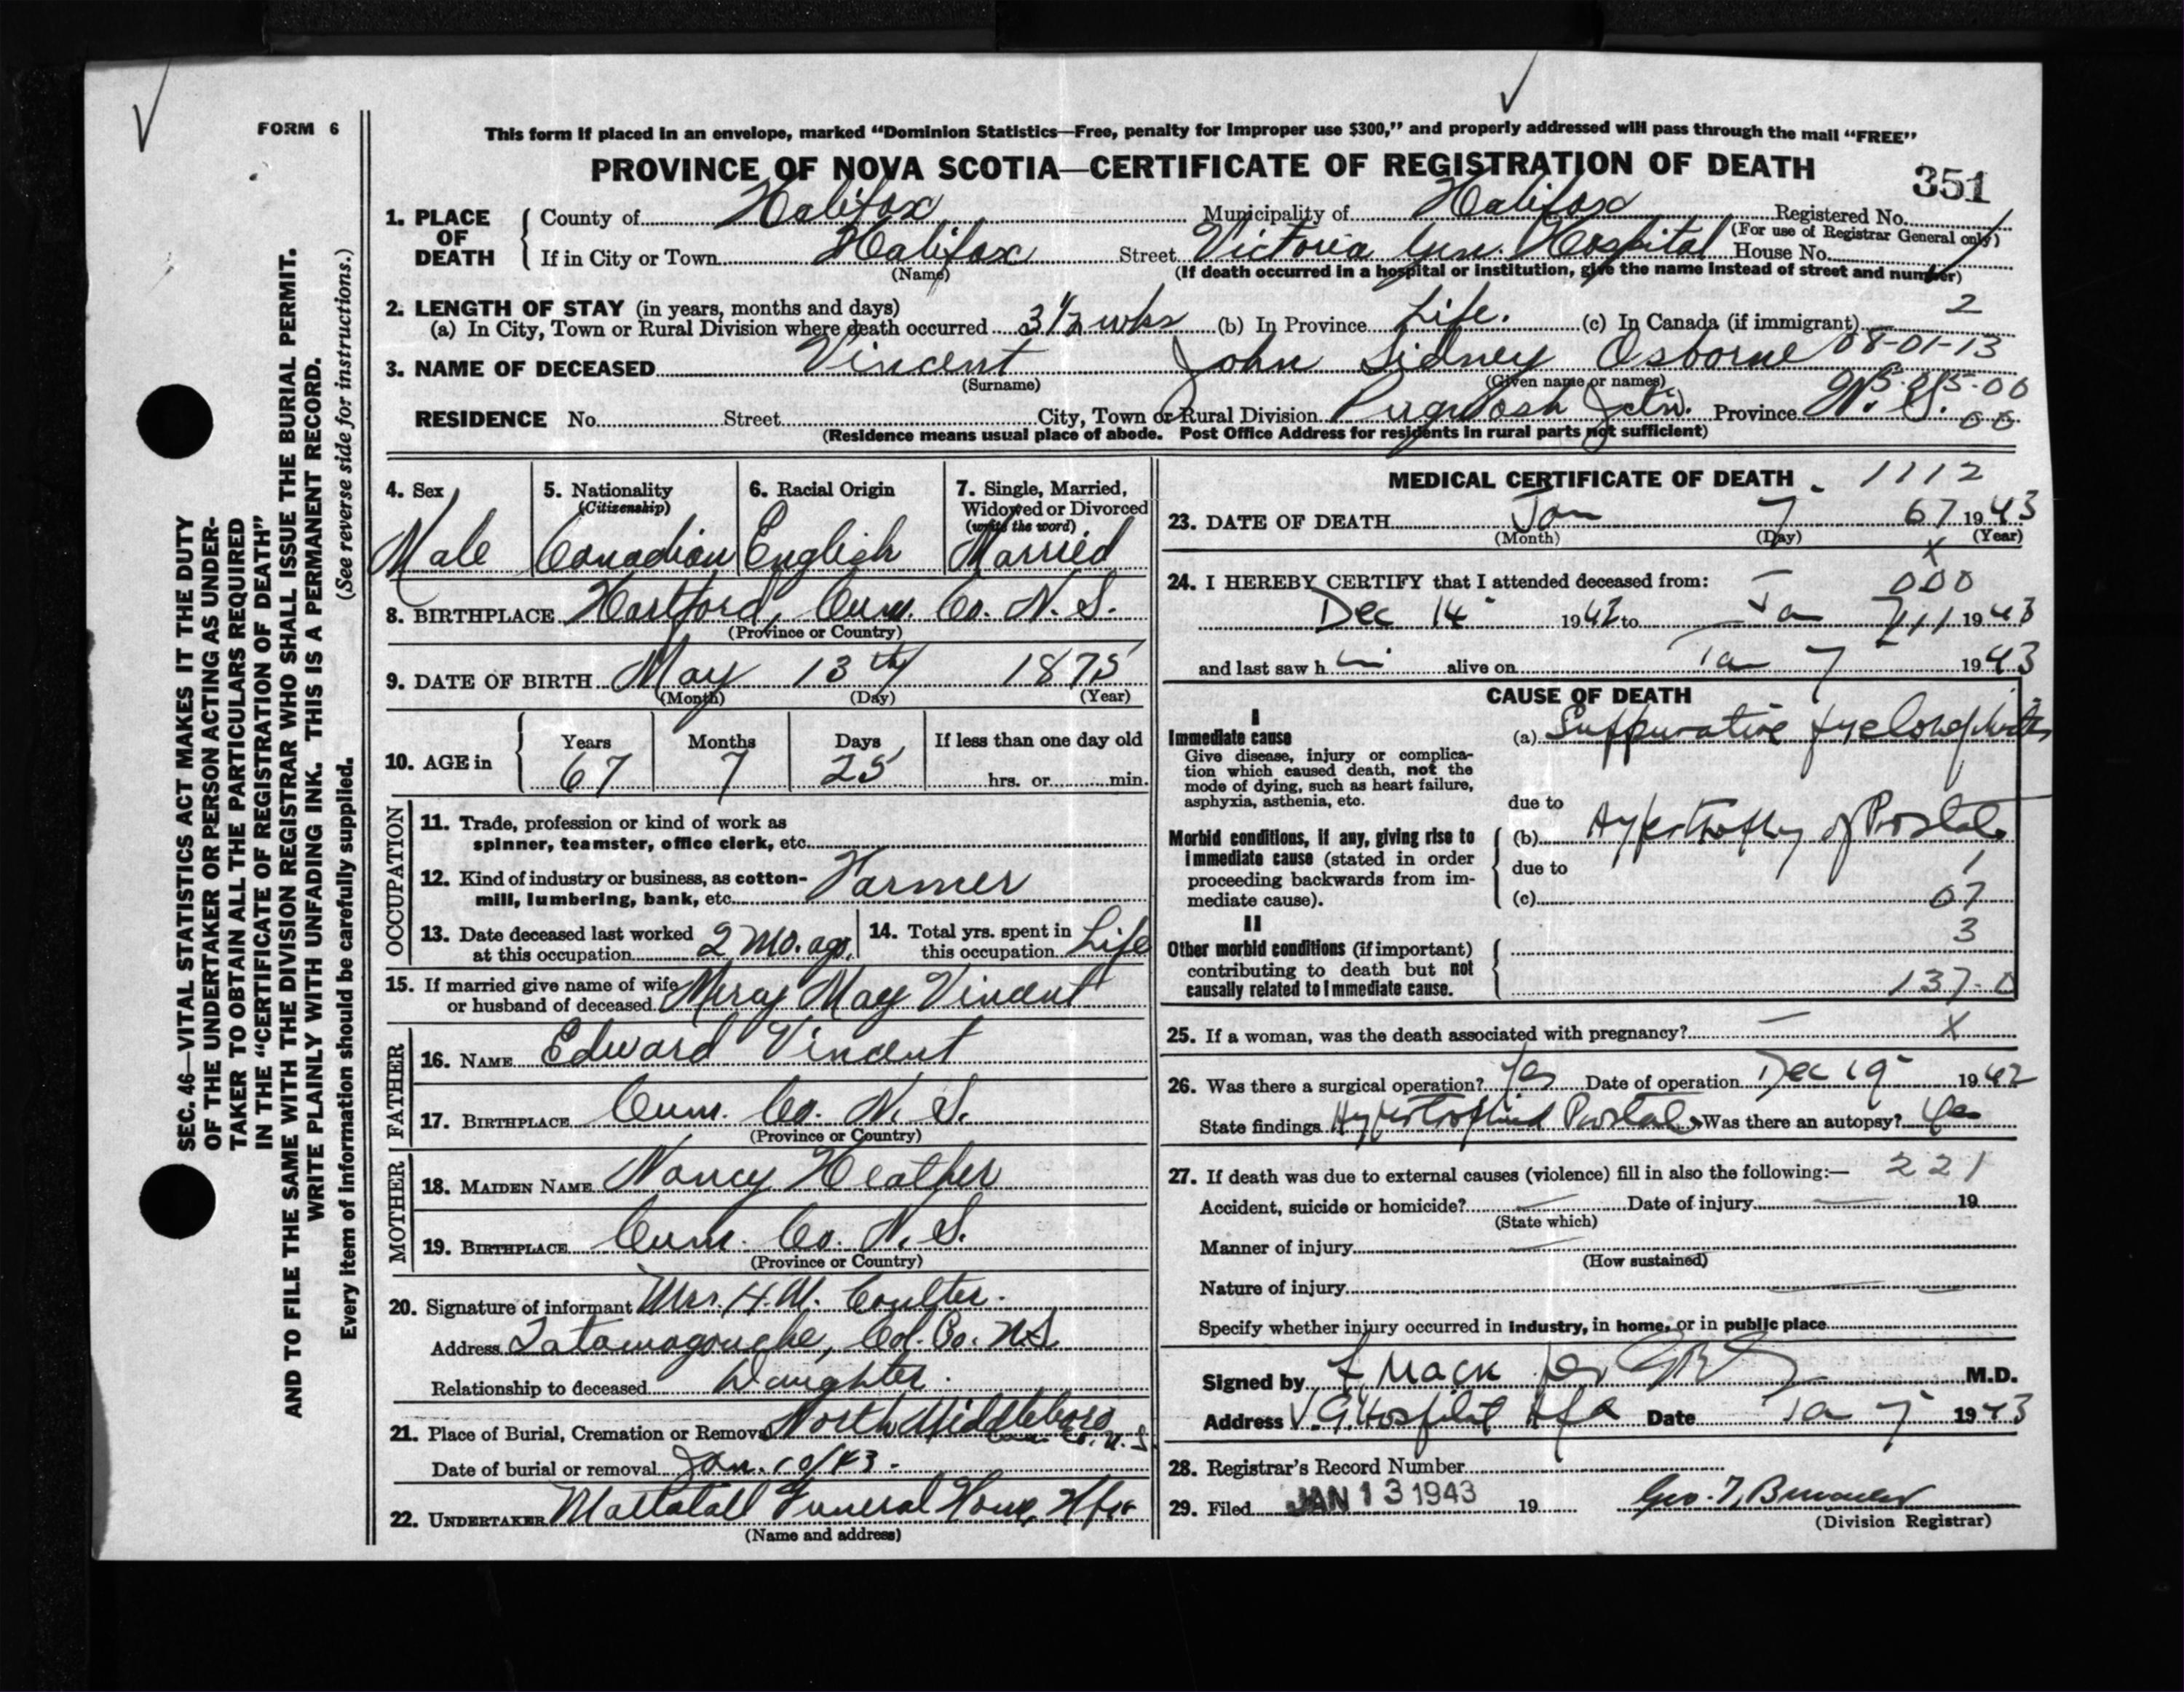 FORM 6
This form if placed in an envelope, marked "Dominion Statistics—Free, penalty for improper use $300," and properly addressed will pass through the mail "FREE"
PROVINCE OF NOVA SCOTIA—CERTIFICATE OF REGISTRATION OF DEATH
351
1. PLACE OF DEATH { County of Halifax Municipality of Halifax Registered No.
(For use of Registrar General only)
If in City or Town Halifax Street Victoria Gen. Hospital House No.
(Name) (If death occurred in a hospital or institution, give the name instead of street and number)
2. LENGTH OF STAY (in years, months and days)
(a) In City, Town or Rural Division where death occurred 3 1/2 wks (b) In Province Life. (c) In Canada (if immigrant) 2
3. NAME OF DECEASED Vincent John Sidney Osborne 08-01-13
(Surname) (Given name or names)
RESIDENCE No. Street City, Town or Rural Division Pugwash Jctn. Province N. S.
00
(Residence means usual place of abode. Post Office Address for residents in rural parts not sufficient)
4. Sex Male
5. Nationality (Citizenship) Canadian
6. Racial Origin English
7. Single, Married, Widowed or Divorced (write the word) Married
8. BIRTHPLACE Hartford, Cum. Co. N. S.
(Province or Country)
9. DATE OF BIRTH May 13th 1875
(Month) (Day) (Year)
10. AGE in { Years Months Days If less than one day old
67 7 25 hrs. or min.
OCCUPATION
11. Trade, profession or kind of work as
spinner, teamster, office clerk, etc.
12. Kind of industry or business, as cotton-
mill, lumbering, bank, etc. Farmer
13. Date deceased last worked at this occupation 2 mo. ago.
14. Total yrs. spent in this occupation Life
15. If married give name of wife
or husband of deceased Mercy May Vincent
FATHER
16. NAME Edward Vincent
17. BIRTHPLACE Cum. Co. N. S.
(Province or Country)
MOTHER
18. MAIDEN NAME Nancy Heather
19. BIRTHPLACE Cum. Co. N. S.
(Province or Country)
20. Signature of informant Mrs. H. W. Coulter.
Address Tatamagouche, Col. Co. N.S.
Relationship to deceased Daughter.
21. Place of Burial, Cremation or Removal North Middleboro
Co. N. S.
Date of burial or removal Jan. 10/43.
22. UNDERTAKER Mattatall Funeral Home, Hfx
(Name and address)
MEDICAL CERTIFICATE OF DEATH 1112
23. DATE OF DEATH Jan 7 67 1943
(Month) (Day) (Year)
x
24. I HEREBY CERTIFY that I attended deceased from: 000
Dec 14 1942 to Ja 7 111 1943
and last saw h im alive on Jan 7 1943
CAUSE OF DEATH
I
Immediate cause
Give disease, injury or complica-
tion which caused death, not the
mode of dying, such as heart failure,
asphyxia, asthenia, etc.
(a) Suppurative pyelonephritis
due to
Morbid conditions, if any, giving rise to
immediate cause (stated in order
proceeding backwards from im-
mediate cause).
(b) Hypertrophy of Prostate
due to 1
(c) 07
II 3
Other morbid conditions (if important)
contributing to death but not
causally related to immediate cause.
137-0
25. If a woman, was the death associated with pregnancy? — x
26. Was there a surgical operation? Yes Date of operation Dec 19 1942
State findings Hypertrophied Prostate Was there an autopsy? Yes
27. If death was due to external causes (violence) fill in also the following:— 221
Accident, suicide or homicide? Date of injury 19
(State which)
Manner of injury
(How sustained)
Nature of injury
Specify whether injury occurred in industry, in home, or in public place
Signed by F. Mack for M.D.
Address V. G. Hospital Hfx Date Jan 7 1943
28. Registrar's Record Number
29. Filed JAN 13 1943 19
(Division Registrar)
SEC. 46—VITAL STATISTICS ACT MAKES IT THE DUTY
OF THE UNDERTAKER OR PERSON ACTING AS UNDER-
TAKER TO OBTAIN ALL THE PARTICULARS REQUIRED
IN THE "CERTIFICATE OF REGISTRATION OF DEATH"
AND TO FILE THE SAME WITH THE DIVISION REGISTRAR WHO SHALL ISSUE THE BURIAL PERMIT.
WRITE PLAINLY WITH UNFADING INK. THIS IS A PERMANENT RECORD.
Every item of information should be carefully supplied. (See reverse side for instructions.)